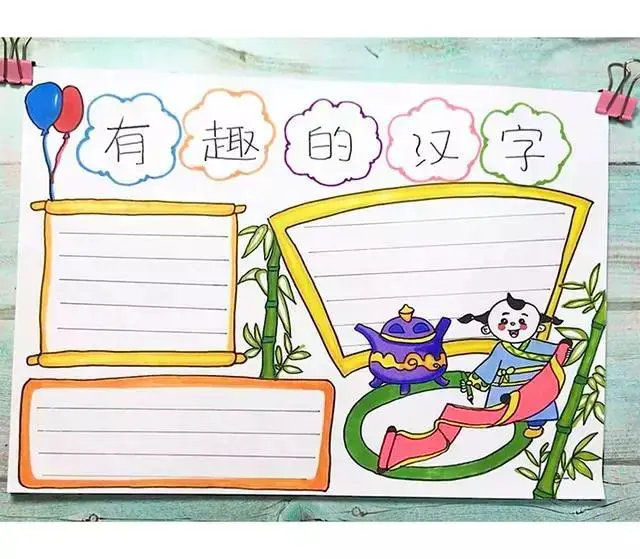 有趣的汉字